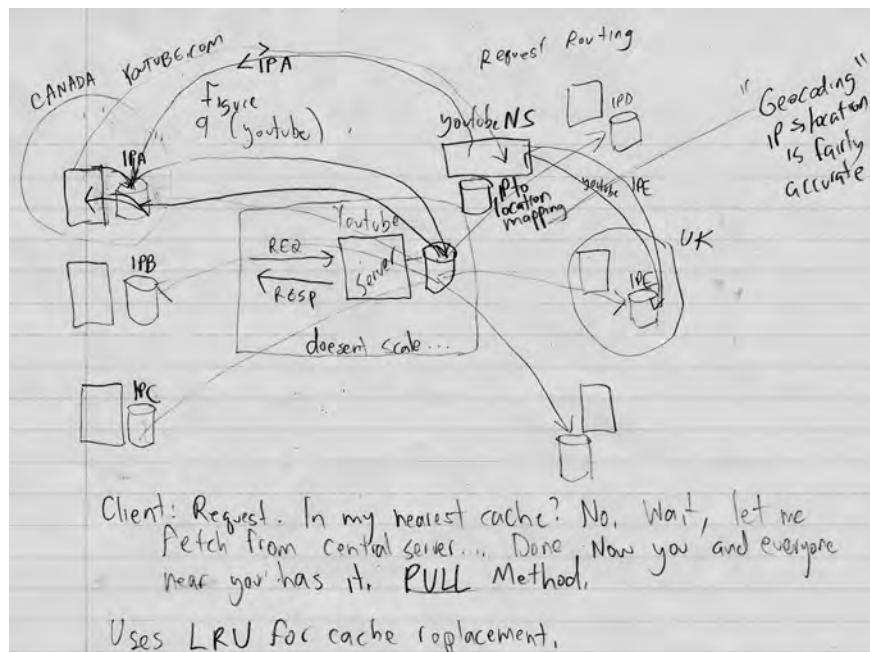 Request Routing
CANADA
YOUTUBE.com
IPA
Figure
9 (youtube)
youtube NS
IPD
"Geocoding"
IP location
is fairly
accurate
IPA
IP to
location
mapping
youtube IPE
UK
Youtube
REQ
Server
RESP
IPB
IPE
doesent scale...
IPC
Client: Request. In my nearest cache? No. Wait, let me
fetch from central server... Done. Now you and everyone
near you has it. PULL Method.
Uses LRU for cache replacement.